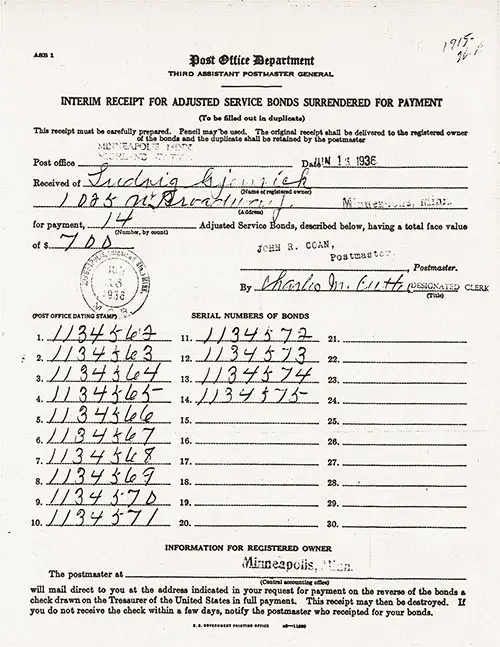 ASB 1
1915-
Post Office Department
THIRD ASSISTANT POSTMASTER GENERAL
INTERIM RECEIPT FOR ADJUSTED SERVICE BONDS SURRENDERED FOR PAYMENT
(To be filled out in duplicate)
This receipt must be carefully prepared. Pencil may be used. The original receipt shall be delivered to the registered owner
of the bonds and the duplicate shall be retained by the postmaster
MINNEAPOLIS MINN
Post office Date JUN 16 1936
Received of Ludwig Gjenrick
(Name of registered owner)
1025 W. Broadway Minneapolis, Minn.
(Address)
for payment, 14 Adjusted Service Bonds, described below, having a total face value
(Number, by count)
of $ 700
JOHN R. COAN,
Postmaster
, Postmaster.
JUN
16
1936
By Charles M. DESIGNATED CLERK
(Title)
(POST OFFICE DATING STAMP) SERIAL NUMBERS OF BONDS
1. 1134562 11. 1134572 21.
2. 1134563 12. 1134573 22.
3. 1134564 13. 1134574 23.
4. 1134565 14. 1134575 24.
5. 1134566 15. 25.
6. 1134567 16. 26.
7. 1134568 17. 27.
8. 1134569 18. 28.
9. 1134570 19. 29.
10. 1134571 20. 30.
INFORMATION FOR REGISTERED OWNER
Minneapolis, Minn.
The postmaster at
(Central accounting office)
will mail direct to you at the address indicated in your request for payment on the reverse of the bonds a
check drawn on the Treasurer of the United States in full payment. This receipt may then be destroyed. If
you do not receive the check within a few days, notify the postmaster who receipted for your bonds.
U. S. GOVERNMENT PRINTING OFFICE